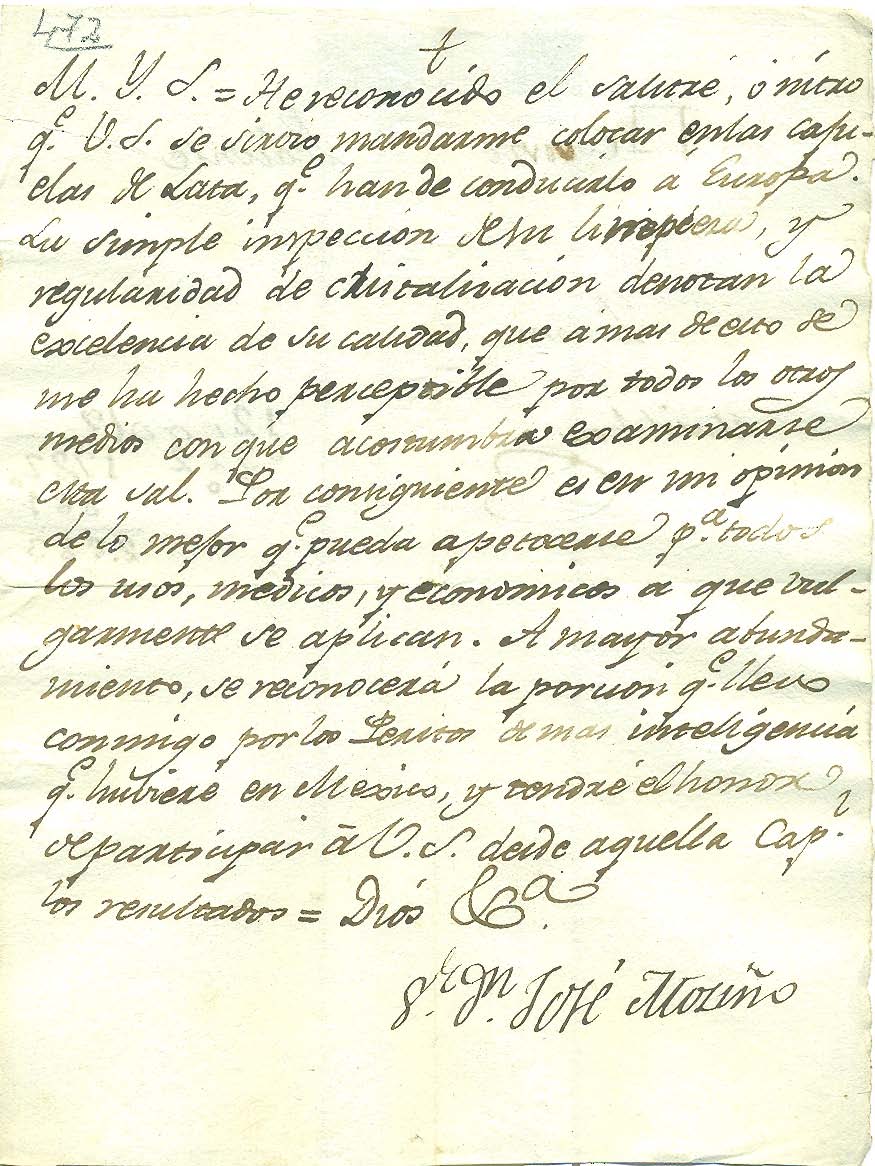 472
+
M. Y. S. = He reconocido el salitre, ó nitro
q.e V. S. se sirvio mandarme colocar en las capu-
elas de Lata, q.e han de conducirlo á Europa.
La simple inspección de su limpieza, y
regularidad de cristalización denotan la
excelencia de su calidad, que a mas de esto se
me ha hecho perceptible por todos los otros
medios con que acostumbra examinarse
esta sal. Por consiguiente es en mi opinion
de lo mejor q.e pueda apetecerse p.a todos
los usos, medicos, y economicos a que vul-
garmente se aplican. A mayor abunda-
miento, se reconocerá la porcion q.e llevo
conmigo por los Peritos de mas inteligencia
q.e huviere en Mexico, y tendré el honor
de participar á V. S. desde aquella Cap.l
los resultados = Diós &.a
S.r D.n José Moziño